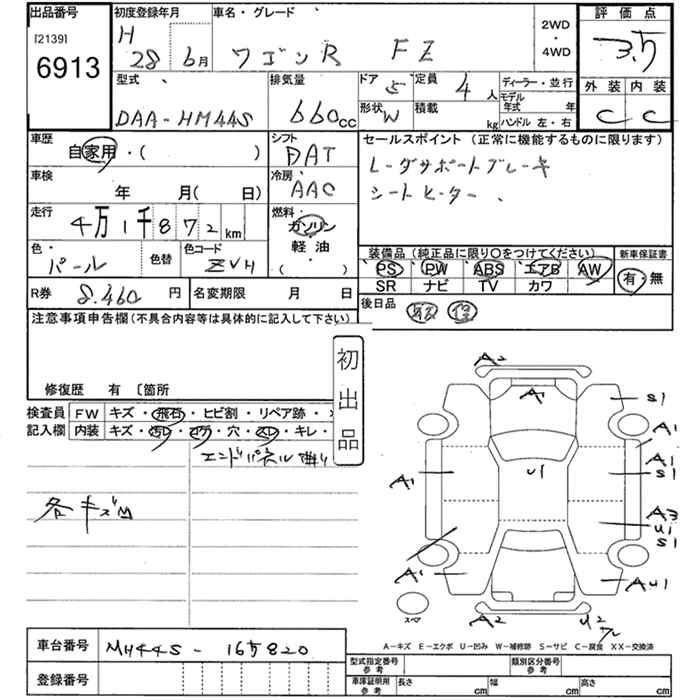 出品番号 初度登録年月 車名・グレード 評価点
[2139] H 2WD
6913 28 6月 ワゴンR FZ ・4WD 3.5
型式 排気量 ドア 5 定員 4人 ディーラー・並行 外装 内装
DAA-HM44S 660cc 形状 W 積載 kg モデル年式 年 C C
ハンドル 左・右
車歴 自家用・( ) シフト DAT セールスポイント (正常に機能するものに限ります)
車検 年 月( 日) 冷房 AAC レーダサポートブレーキ
シートヒーター、
走行 4万1千872km 燃料 ガソリン
軽・油
・( )
色・パール 色替 色コード ZVH
装備品 (純正品に限り○をつけてください) 新車保証書
PS PW ABS エアB AW 有・無
SR ナビ TV カワ
R券 8.460円 名変期限 月 日 後日品
注意事項申告欄(不具合内容等は具体的に記入して下さい)
初出品
修復歴 有 〔箇所
検査員 FW キズ・飛石・ヒビ割・リペア跡・
記入欄 内装 キズ・汚レ・コゲ・穴・スレ・キレ・
エンドパネル曲り
各キズ凹
A2
A1
S1
A1
A1
S1
A1
U1
A3
U1
S1
A1
AU1
スペア
A2
U2
A－キズ E－エクボ U－凹み W－補修跡 S－サビ C－腐食 XX－交換済
車台番号 MH44S - 165820
登録番号
型式指定番号 参考 類別区分番号 参考
車庫証明用 参考 長さ cm 幅 cm 高さ cm